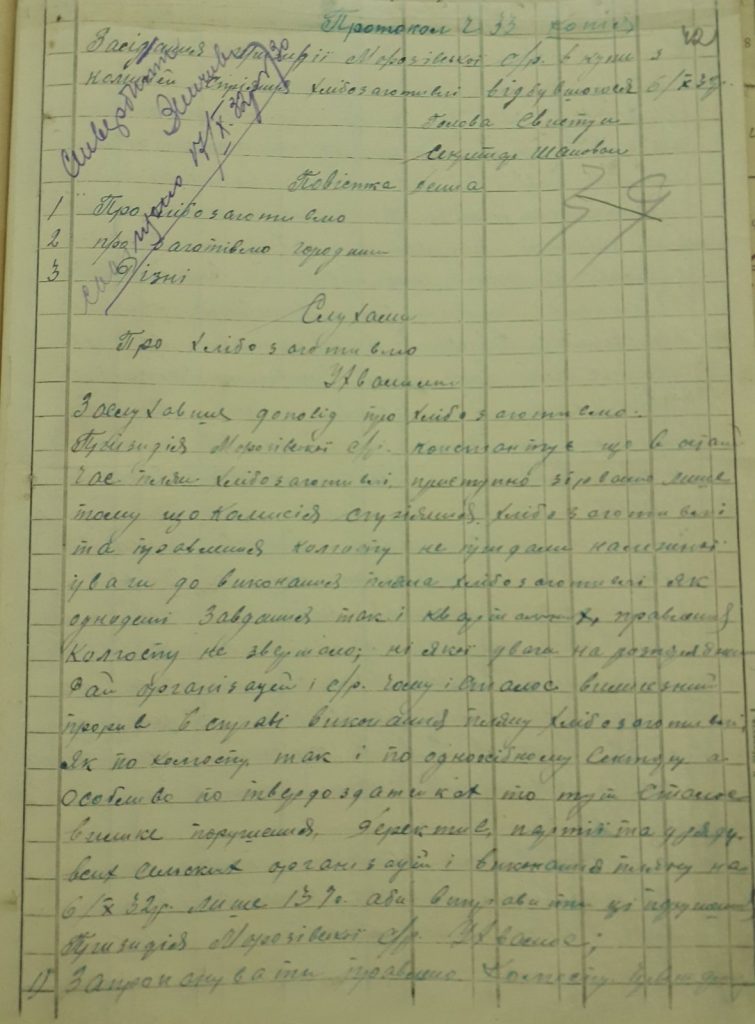 Протокол ч 33 копія
42
Засідання Призидії Морозівської с/р. в купі з
комісієй сприяння хлібозаготівлі відбувшогося 6/ІХ 32р.
Голова Свистун
Секретар Шаповал
Повістка денна
1 Про хлібозаготівлю
2 про заготівлю городини
3 Різні
17/ІХ. 32р.
Слухали
Про хлібозаготівлю
Ухвалили
Заслухавши доповід про хлібозаготівлю.
Призидія Морозівської с/р. константує що в
час плян хлібозаготівлі, приступно зірвано лише
тому що комисія сприяння хлібозаготівлі
та правління колгоспу не придали належної
уваги до виконання пляна хлібозаготівлі як
одноденні завдання так і квартальних, правління
колгоспу не звертало; ні якої уваги на
Рай організацій і с/р. чому і сталос
прорив в справі виконання пляну хлібозаготівлі
як по колгоспу так і по одноосібному сектору а
особливо по твердоздатчиках то тут сталос
велике порушення, деректив, партії та уряду.
всих сільских організацій і виконання пляну на
6/ІХ 32р. лише 13%. аби виправити ці
Призидія Морозівської с/р. Ухвалює;
1/ Запропонувати правлінню колгоспу